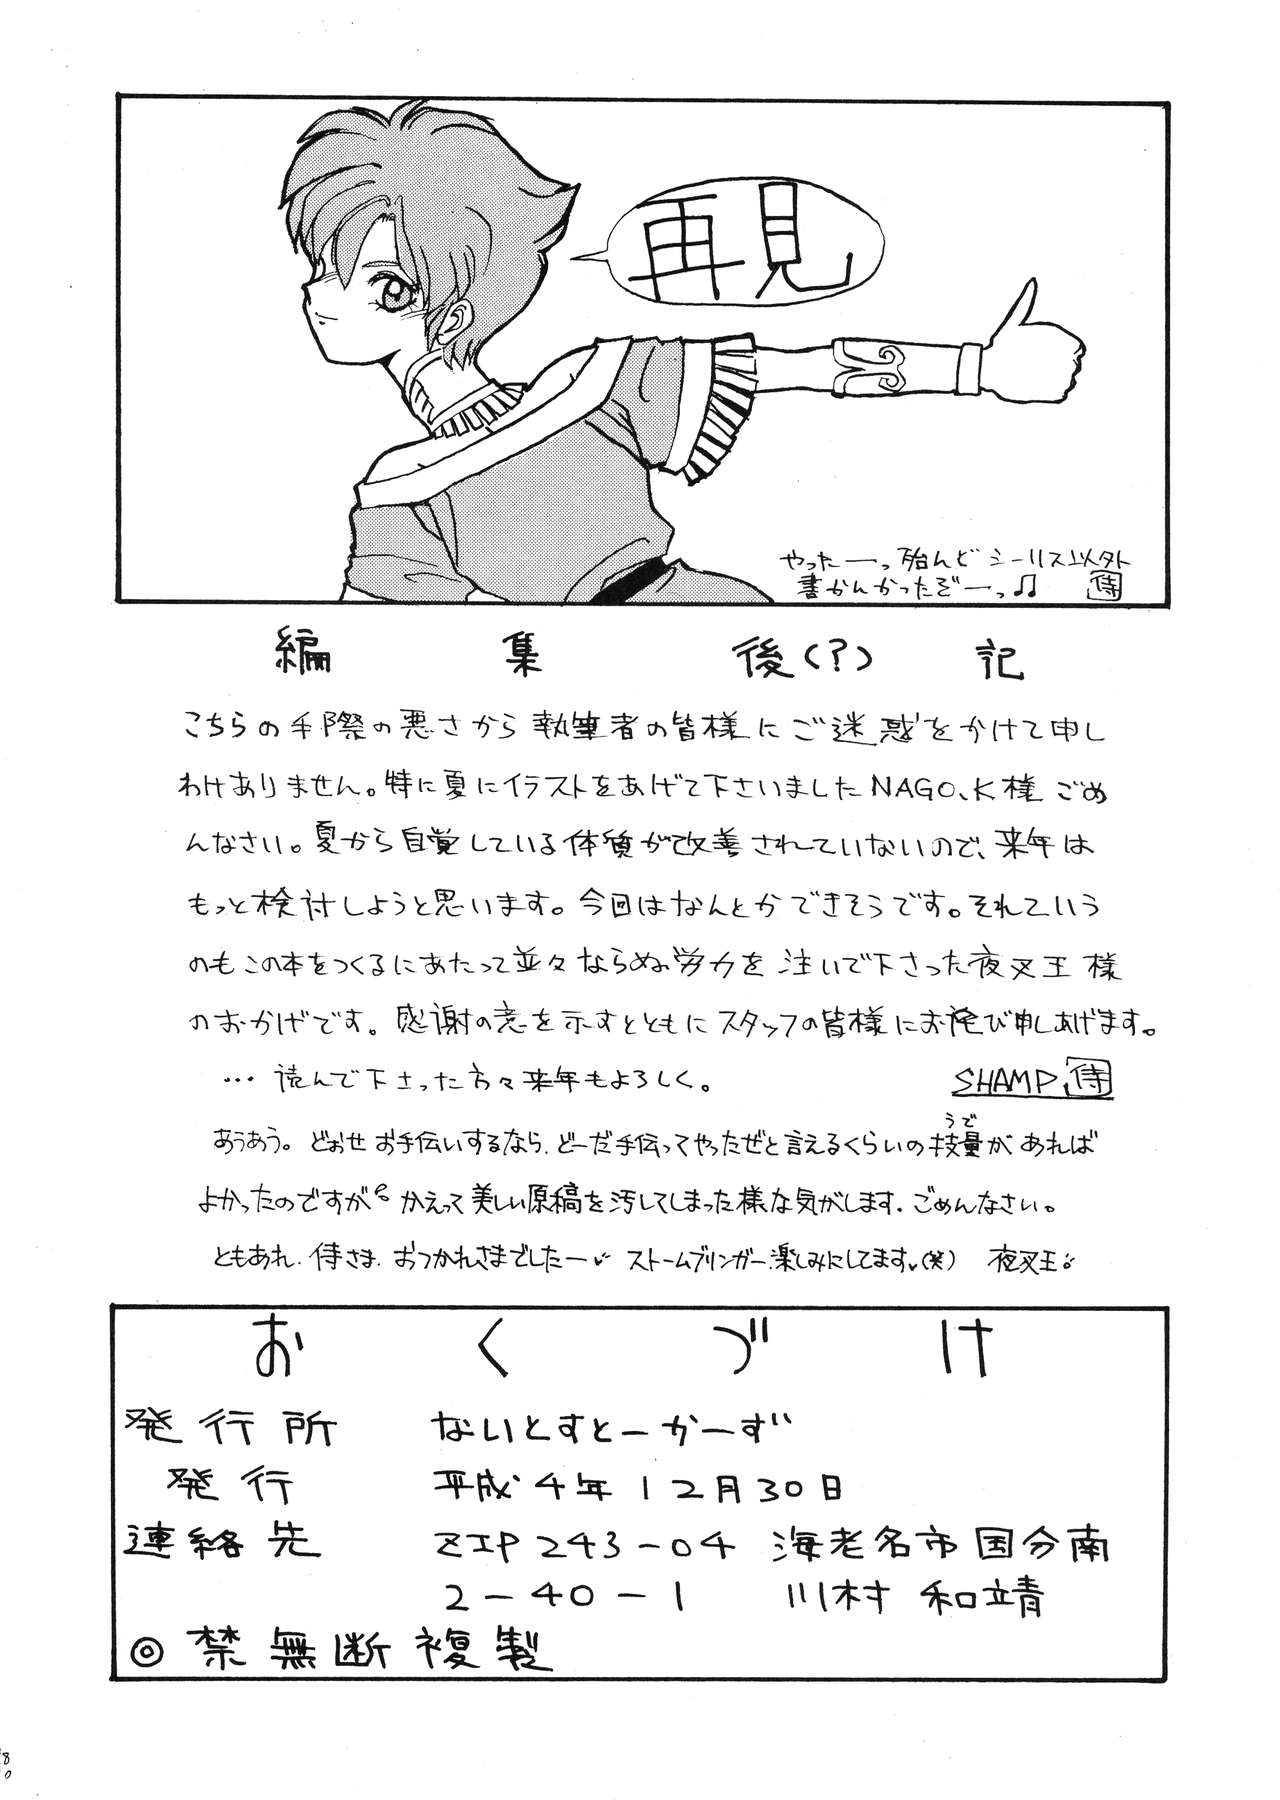 再見
やったーっ殆んどシーリス以外
書かんかったぞーっ♫ 侍
編集後(?)記
こちらの手際の悪さから執筆者の皆様にご迷惑をかけて申し
わけありません。特に夏にイラストをあげて下さいましたNAGO.K様ごめ
んなさい。夏から自覚している体質が改善されていないので、来年は
もっと検討しようと思います。今回はなんとかできそうです。それていう
のもこの本をつくるにあたって並々ならぬ労力を注いで下さった夜叉王様
のおかげです。感謝の意を示すとともにスタッフの皆様にお詫び申しあげます。
…読んで下さった方々来年もよろしく。 SHAMP.侍
あうあう。どおせお手伝いするなら、どーだ手伝ってやったぜと言えるくらいの技量(うで)があれば
よかったのですが。かえって美しい原稿を汚してしまった様な気がします.ごめんなさい。
ともあれ.侍さま.おつかれさまでしたー♥ストームブリンガー楽しみにしてます♥(笑) 夜叉王
おくづけ
発行所 ないとすとーかーず
発行 平成4年12月30日
連絡先 ZIP 243-04 海老名市国分南
2-40-1 川村 和靖
◎禁無断複製